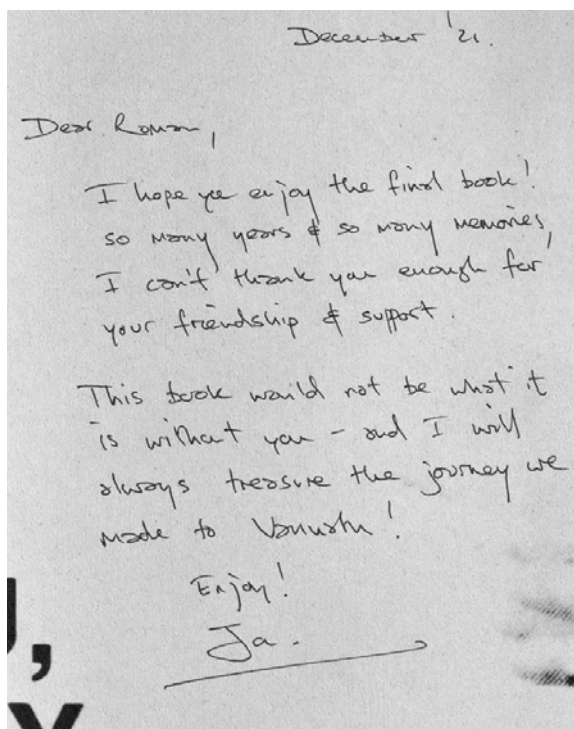 December '21.
Dear Roman,
I hope you enjoy the final book!
so many years & so many memories,
I can't thank you enough for
your friendship & support.
This book would not be what it
is without you – and I will
always treasure the journey we
made to Vanuatu!
Enjoy!
Ja.